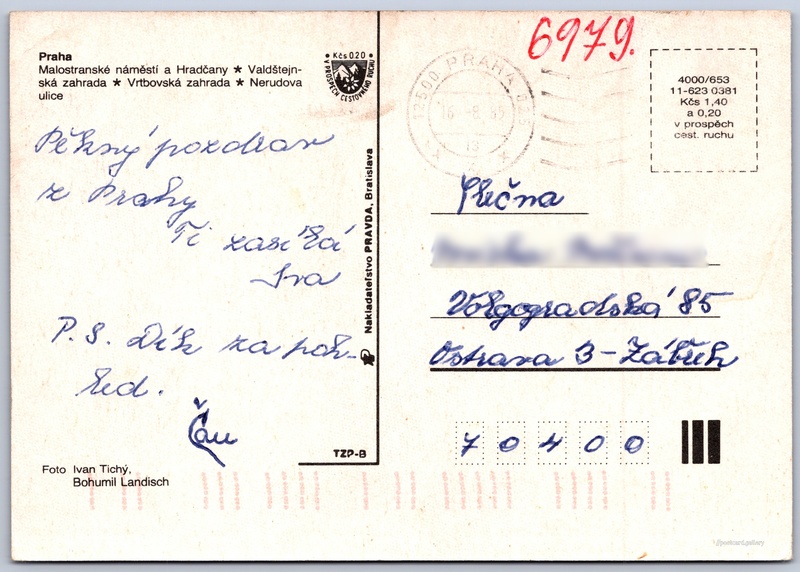 Praha
Malostranské náměstí a Hradčany ★ Valdštejn-
ská zahrada ★ Vrtbovská zahrada ★ Nerudova
ulice
Kčs 0,20
V PROSPĚCH CESTOVNÍHO RUCHU
Pěkný pozdrav
z Prahy
Ti zasílá
Iva
P.S. Dík za poh-
led.
Čau
Foto Ivan Tichý,
Bohumil Landisch
Nakladatelstvo PRAVDA, Bratislava
TZP-B
6979.
PRAHA
4000/653
11-623 0381
Kčs 1,40
a 0,20
v prospěch
cest. ruchu
Slečna
Volgogradská 85
Ostrava 3-Zábřeh
70400